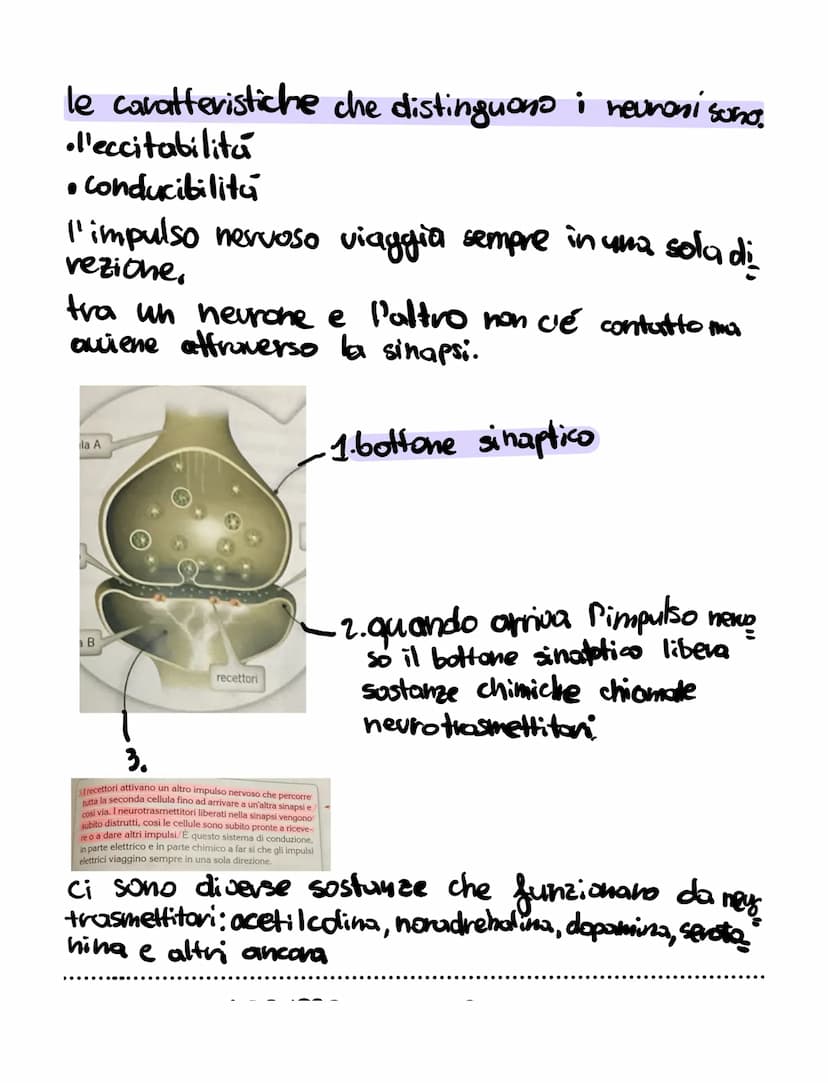 le caratteristiche che distinguono i neuroni sono:
•l'eccitabilitá
• conducibilitá
l'impulso nervoso viaggia sempre in una sola di
rezione,
tra un neurone e l'altro non c'é contatto ma
avviene attraverso la sinapsi.
la A
1.bottone sinaptico
B
2.quando arriva l'impulso nervo
so il bottone sinaptico libera
sostanze chimiche chiamate
neurotrasmettitori
recettori
3.
I recettori attivano un altro impulso nervoso che percorre
tutta la seconda cellula fino ad arrivare a un'altra sinapsi e
così via. I neurotrasmettitori liberati nella sinapsi vengono
subito distrutti, così le cellule sono subito pronte a riceve-
re o a dare altri impulsi. È questo sistema di conduzione,
in parte elettrico e in parte chimico a far sì che gli impulsi
elettrici viaggino sempre in una sola direzione.
ci sono diverse sostanze che funzionano da neu
trasmettitori: acetilcolina, noradrenalina, dopamina, seroto
nina e altri ancora